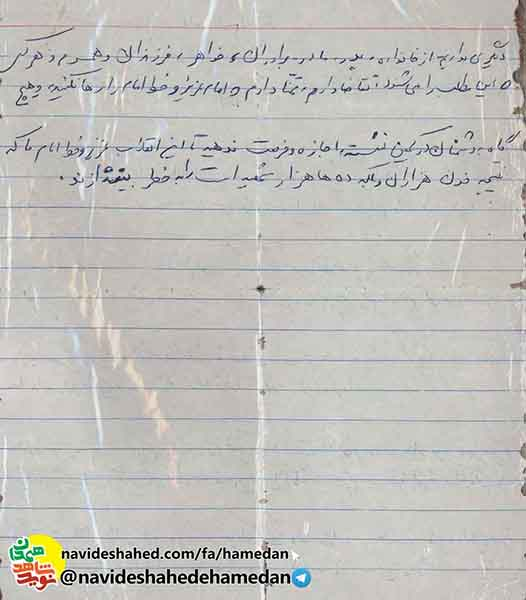 دیگری ندارم از خانواده، پدر، مادر، برادران، خواهر، فرزندان و همسرم و هر کس
که این مطلب را می‌شنود تقاضا دارم، تمنا دارم که امام عزیز و خط امام را رها نکنید و هیچ
گاه به دشمنان در کمین نشسته اجازه و فرصت ندهید تا این انقلاب عزیز و خط امام را که
نتیجه خون هزاران بلکه ده ها هزار شهید است را به خطر بیندازند.
navideshahed.com/fa/hamedan
@navideshahedehamedan
نوید شاهد همدان